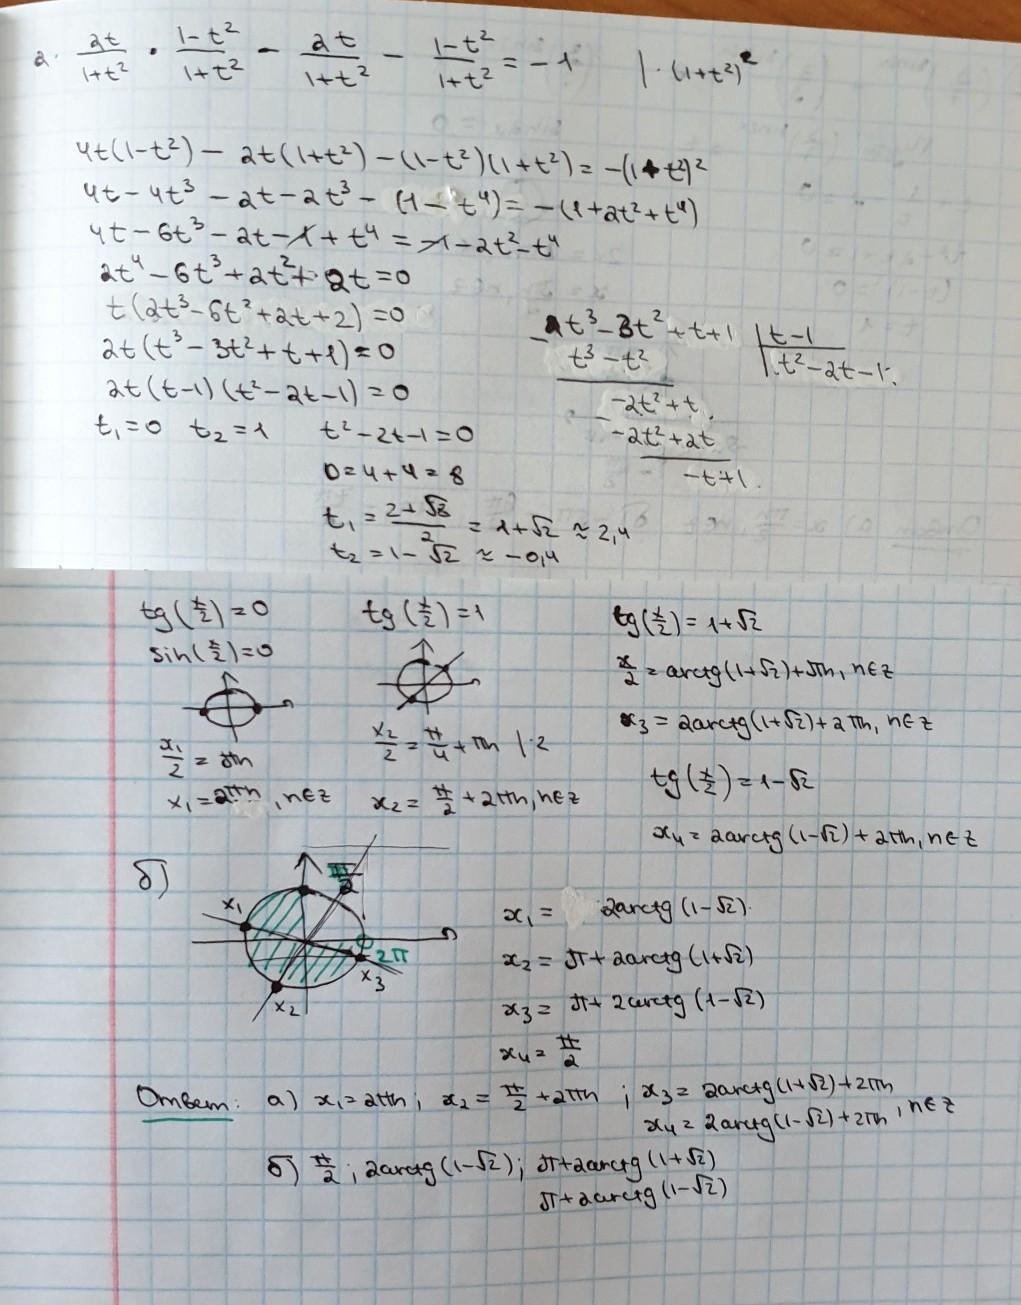 2. \frac{2t}{1+t^2} \cdot \frac{1-t^2}{1+t^2} - \frac{2t}{1+t^2} - \frac{1-t^2}{1+t^2} = -1 | \cdot (1+t^2)^2
4t(1-t^2) - 2t(1+t^2) - (1-t^2)(1+t^2) = -(1+t^2)^2
4t - 4t^3 - 2t - 2t^3 - (1 - t^4) = -(1+2t^2+t^4)
4t - 6t^3 - 2t - 1 + t^4 = -1 - 2t^2 - t^4
2t^4 - 6t^3 + 2t^2 + 2t = 0
t(2t^3 - 6t^2 + 2t + 2) = 0
2t(t^3 - 3t^2 + t + 1) = 0
2t(t-1)(t^2 - 2t - 1) = 0
t_1 = 0 t_2 = 1 t^2 - 2t - 1 = 0
D = 4 + 4 = 8
t_1 = \frac{2+\sqrt{8}}{2} = 1+\sqrt{2} ≈ 2,4
t_2 = 1 - \sqrt{2} ≈ -0,4
t^3 - 3t^2 + t + 1 | t - 1
t^3 - t^2 | t^2 - 2t - 1
-2t^2 + t
-2t^2 + 2t
-t + 1
tg(\frac{x}{2}) = 0
sin(\frac{x}{2}) = 0
\frac{x_1}{2} = πn
x_1 = 2πn, n∈z
tg(\frac{x}{2}) = 1
\frac{x_2}{2} = \frac{π}{4} + πn | ·2
x_2 = \frac{π}{2} + 2πn, n∈z
tg(\frac{x}{2}) = 1+\sqrt{2}
\frac{x}{2} = arctg(1+\sqrt{2}) + πn, n∈z
x_3 = 2arctg(1+\sqrt{2}) + 2πn, n∈z
tg(\frac{x}{2}) = 1-\sqrt{2}
x_4 = 2arctg(1-\sqrt{2}) + 2πn, n∈z
б)
\frac{π}{2}
x_1
2π
x_3
x_2
x_1 = 2arctg(1-\sqrt{2})
x_2 = π + 2arctg(1+\sqrt{2})
x_3 = π + 2arctg(1-\sqrt{2})
x_4 = \frac{π}{2}
Ответ: а) x_1 = 2πn; x_2 = \frac{π}{2} + 2πn; x_3 = 2arctg(1+\sqrt{2}) + 2πn
x_4 = 2arctg(1-\sqrt{2}) + 2πn, n∈z
б) \frac{π}{2}; 2arctg(1-\sqrt{2}); π+2arctg(1+\sqrt{2})
π+2arctg(1-\sqrt{2})